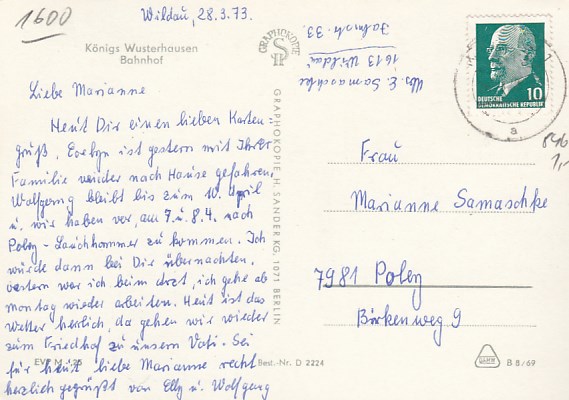 1600
Wildau, 28.3.73.
Königs Wusterhausen
Bahnhof
Liebe Marianne
Heut Dir einen lieben Karten-
gruß, Evelyn ist gestern mit Ihrer
Familie wieder nach Hause gefahren,
Wolfgang bleibt bis zum 10. April
u. wir haben vor, am 7. u. 8.4. nach
Poley - Lauchhammer zu kommen. Ich
würde dann bei Dir übernachten.
Gestern war ich beim Arzt, ich gehe ab
Montag wieder arbeiten. Heut ist das
Wetter herrlich, da gehen wir wieder
zum Friedhof zu unsern Vati. Sei
für heut liebe Marianne recht
herzlich gegrüßt von Elly u. Wolfgang
EVP M
Best.-Nr. D 2224
GRAPHOKOPIE
GRAPHOKOPIE H. SANDER KG, 1071 BERLIN
Abs. E. Samaschke
1613 Wildau
33
10
DEUTSCHE
DEMOKRATISCHE REPUBLIK
a
1,-
Frau
Marianne Samaschke
7981 Poley
Birkenweg 9
B 8/69